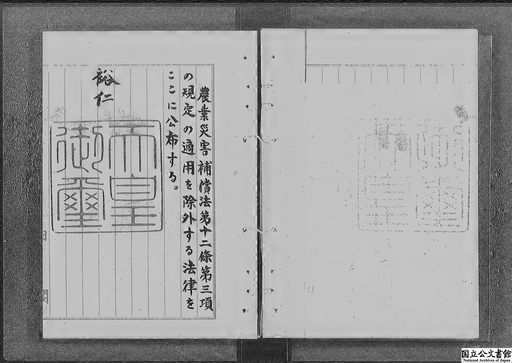 農業災害補償法第十二條第三項
の規定の適用を除外する法律を
ここに公布する。
裕仁
天皇
御璽
国立公文書館
National Archives of Japan